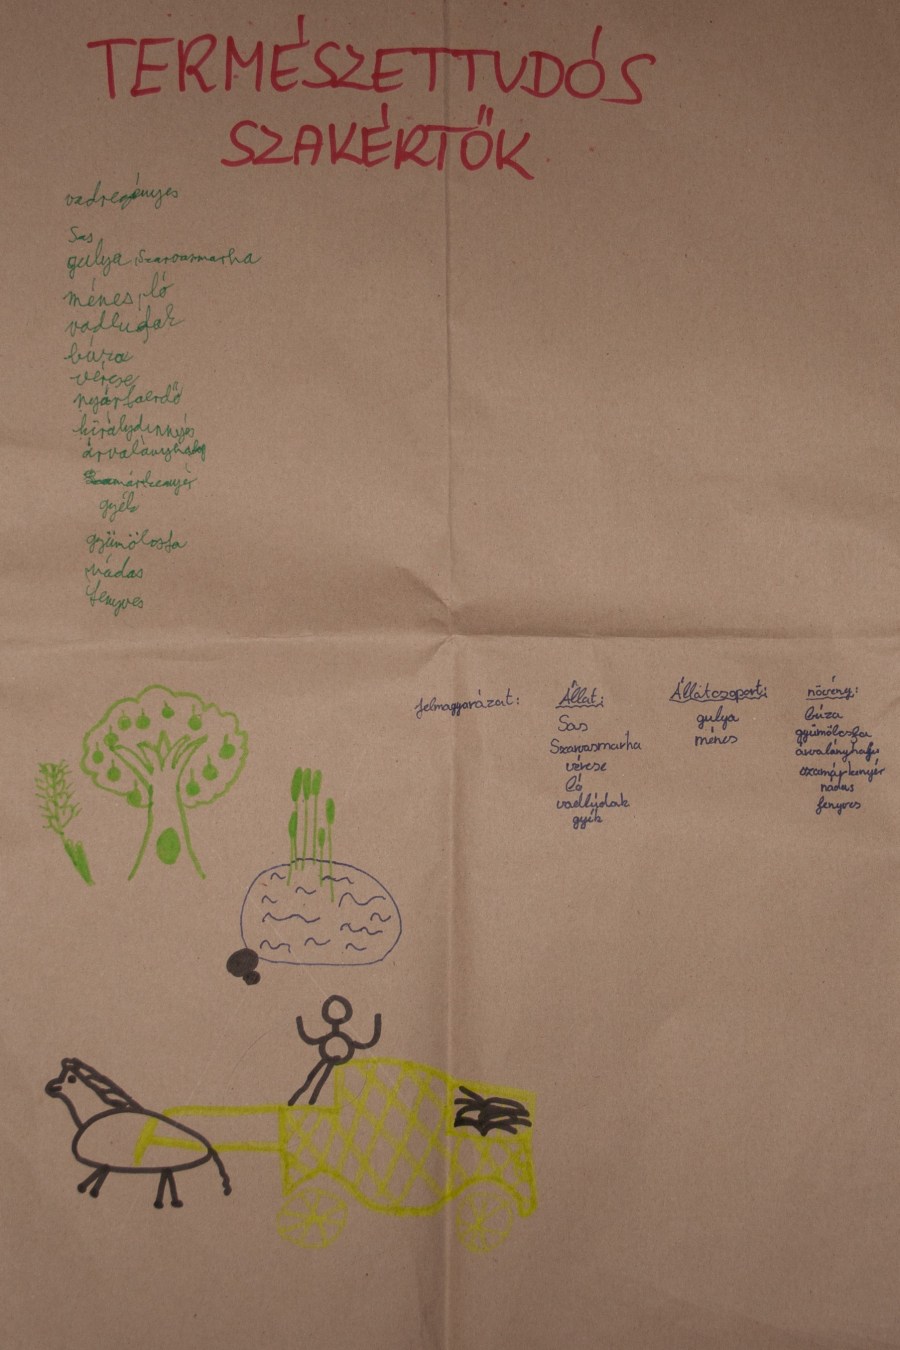 TERMÉSZETTUDÓS
SZAKÉRTŐK
vadregényes
Sas
gulya, Szarvasmarha
ménes, ló
vadludak
búza
vércse
nyárfaerdő
királydinnyés
árvalányhaj
Szamárkenyér
gyék
gyümölcsfa
nádas
fenyves
felmagyarázat:
Állat:
Sas
Szarvasmarha
vércse
ló
vadlúdak
gyék
Állatcsoport:
gulya
ménes
növény:
búza
gyümölcsfa
árvalányhaj
szamárkenyér
nádas
fenyves